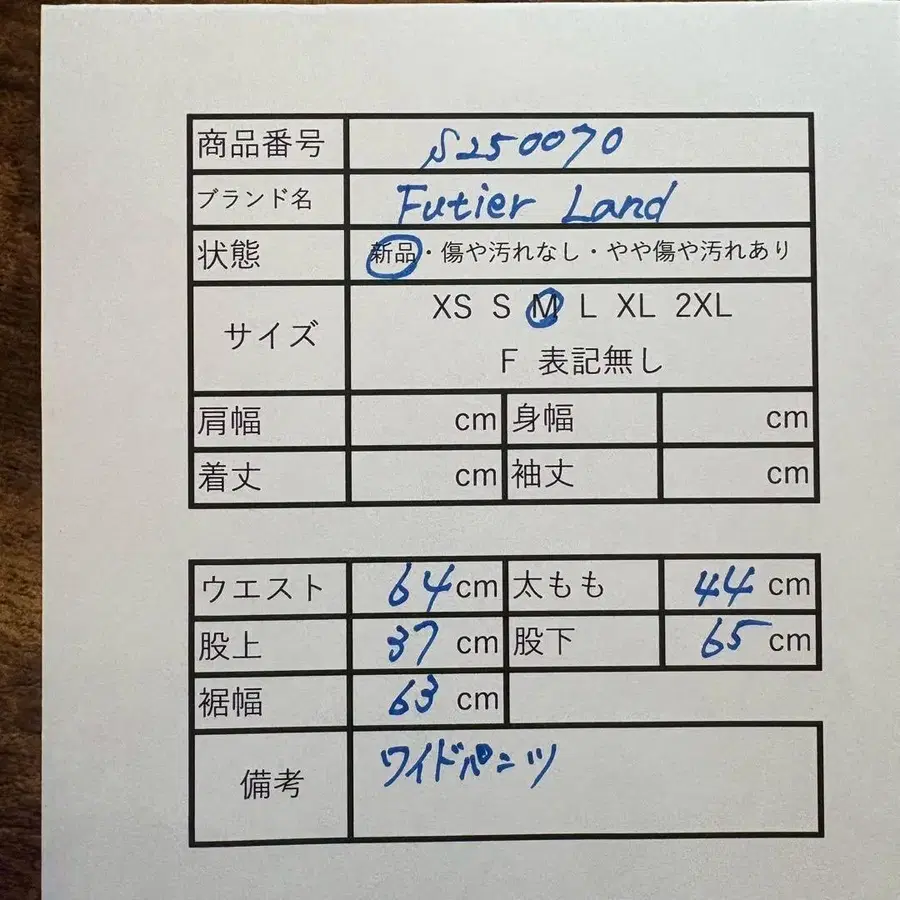 商品番号 S250070
ブランド名 Futier Land
状態 新品・傷や汚れなし・やや傷や汚れあり
サイズ XS S M L XL 2XL
F 表記無し
肩幅 cm 身幅 cm
着丈 cm 袖丈 cm
ウエスト 64 cm 太もも 44 cm
股上 37 cm 股下 65 cm
裾幅 63 cm
備考 ワイドパンツ